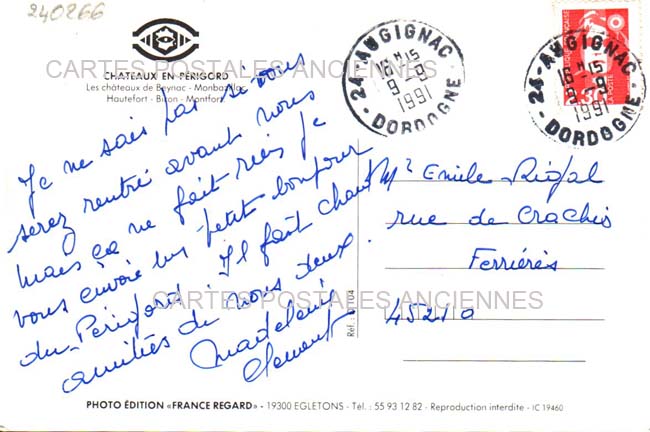 240266
CHATEAUX EN PÉRIGORD
Les châteaux de Beynac - Monbazillac
Hautefort - Biron - Montfort
CARTES POSTALES ANCIENNES
Je ne sais pas si vous
serez rentré avant nous
mais ça ne fait rien je
vous envoie un petit bonjour
du Périgord. Il fait chaud.
amitiés de nous deux.
Madeleine
Clement
24-AUGIGNAC
16 H 15
9-9
1991
-DORDOGNE-
24-AUGIGNAC
16 H 15
9-9
1991
-DORDOGNE-
Mr Emile Riojal
rue de Crachis
Ferrières
45210
CARTES POSTALES ANCIENNES
PHOTO ÉDITION «FRANCE REGARD» - 19300 EGLETONS - Tél. : 55 93 12 82 - Reproduction interdite - IC 19460